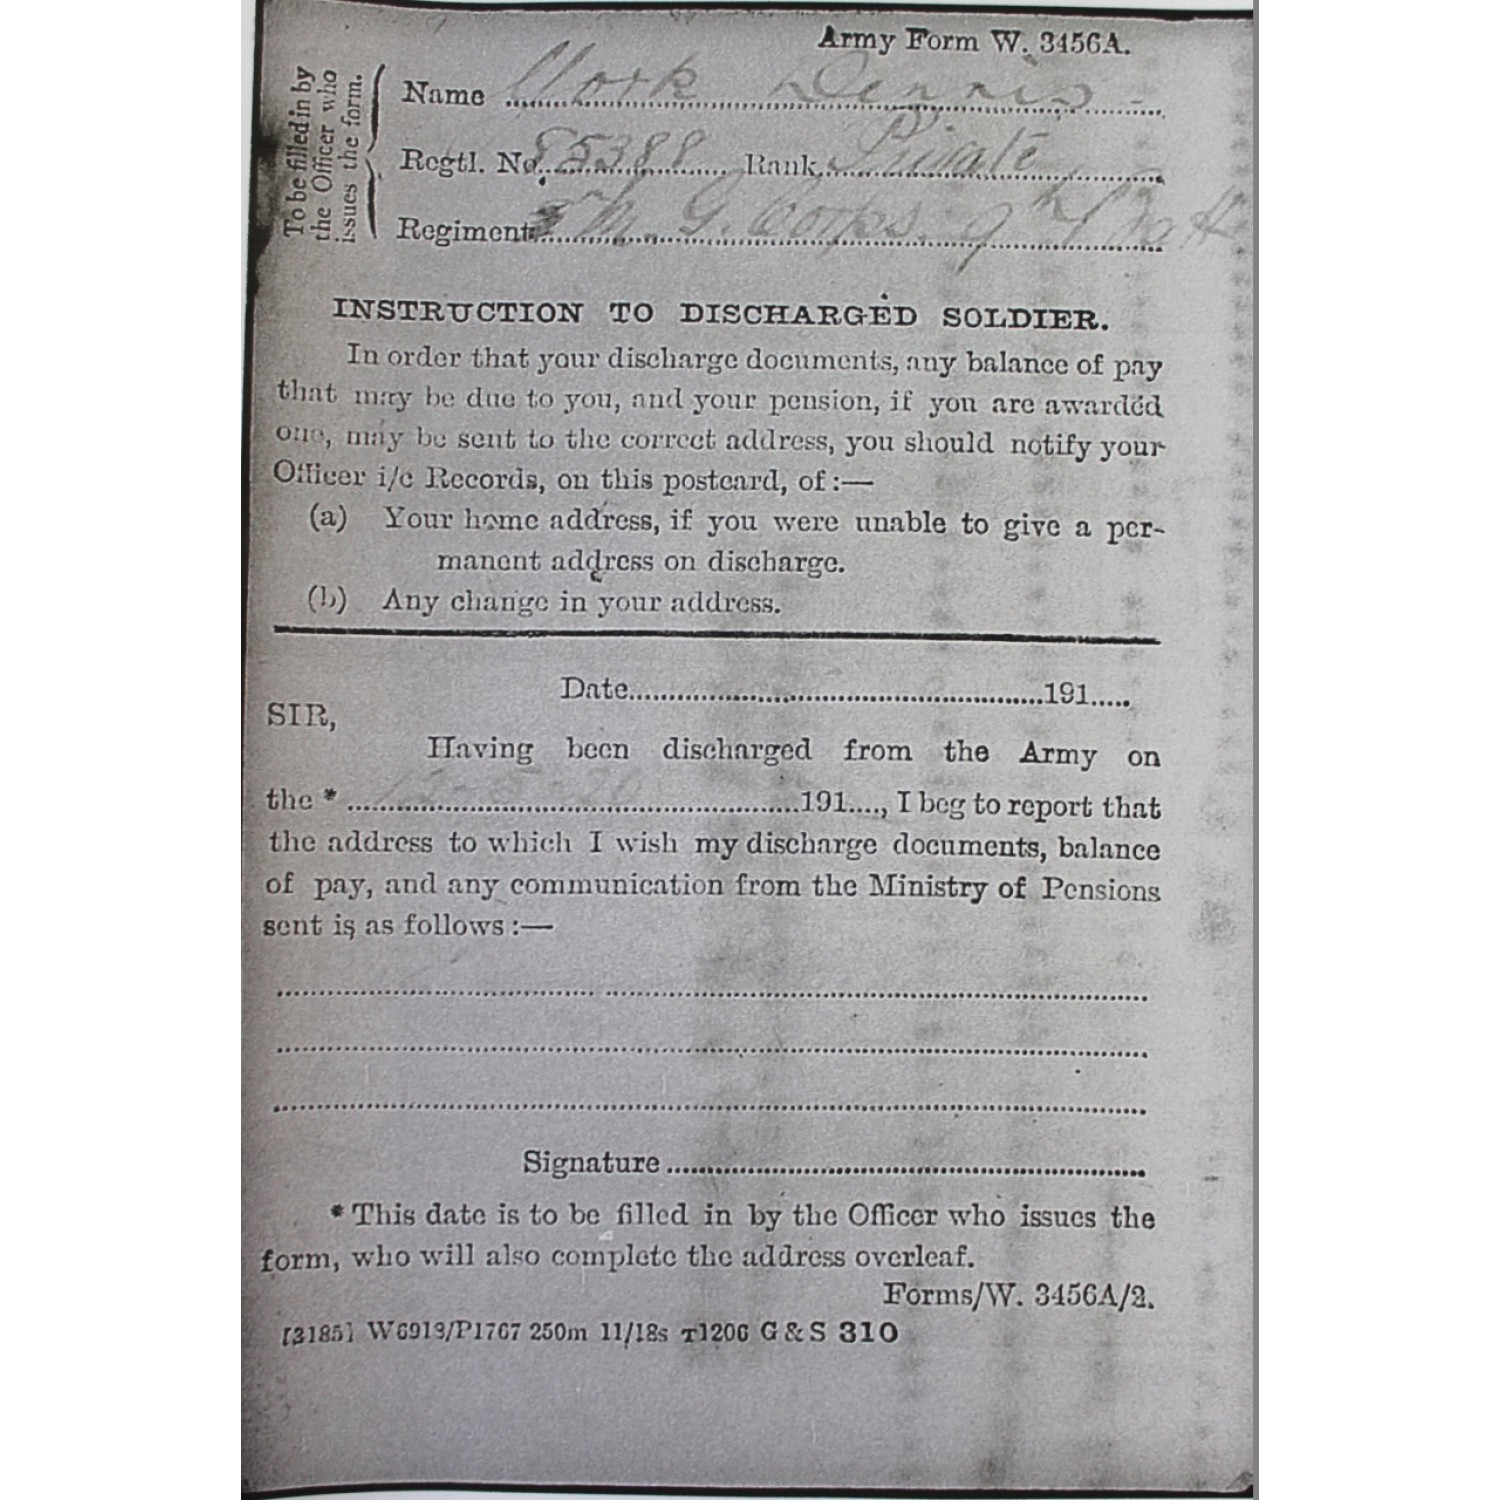 Army Form W. 3456A.
To be filled in by
the Officer who
issues the form.
Name Dennis
Regtl. No. 85388 Rank Private
Regiment M. G. Corps. 9th Batt
INSTRUCTION TO DISCHARGED SOLDIER.
In order that your discharge documents, any balance of pay
that may be due to you, and your pension, if you are awarded
one, may be sent to the correct address, you should notify your
Officer i/c Records, on this postcard, of:—
(a) Your home address, if you were unable to give a per-
manent address on discharge.
(b) Any change in your address.
Date 191.....
SIR,
Having been discharged from the Army on
the * 191...., I beg to report that
the address to which I wish my discharge documents, balance
of pay, and any communication from the Ministry of Pensions
sent is as follows:—
Signature
* This date is to be filled in by the Officer who issues the
form, who will also complete the address overleaf.
Forms/W. 3456A/2.
[3185] W6913/P1767 250m 11/18s T1206 G & S 310